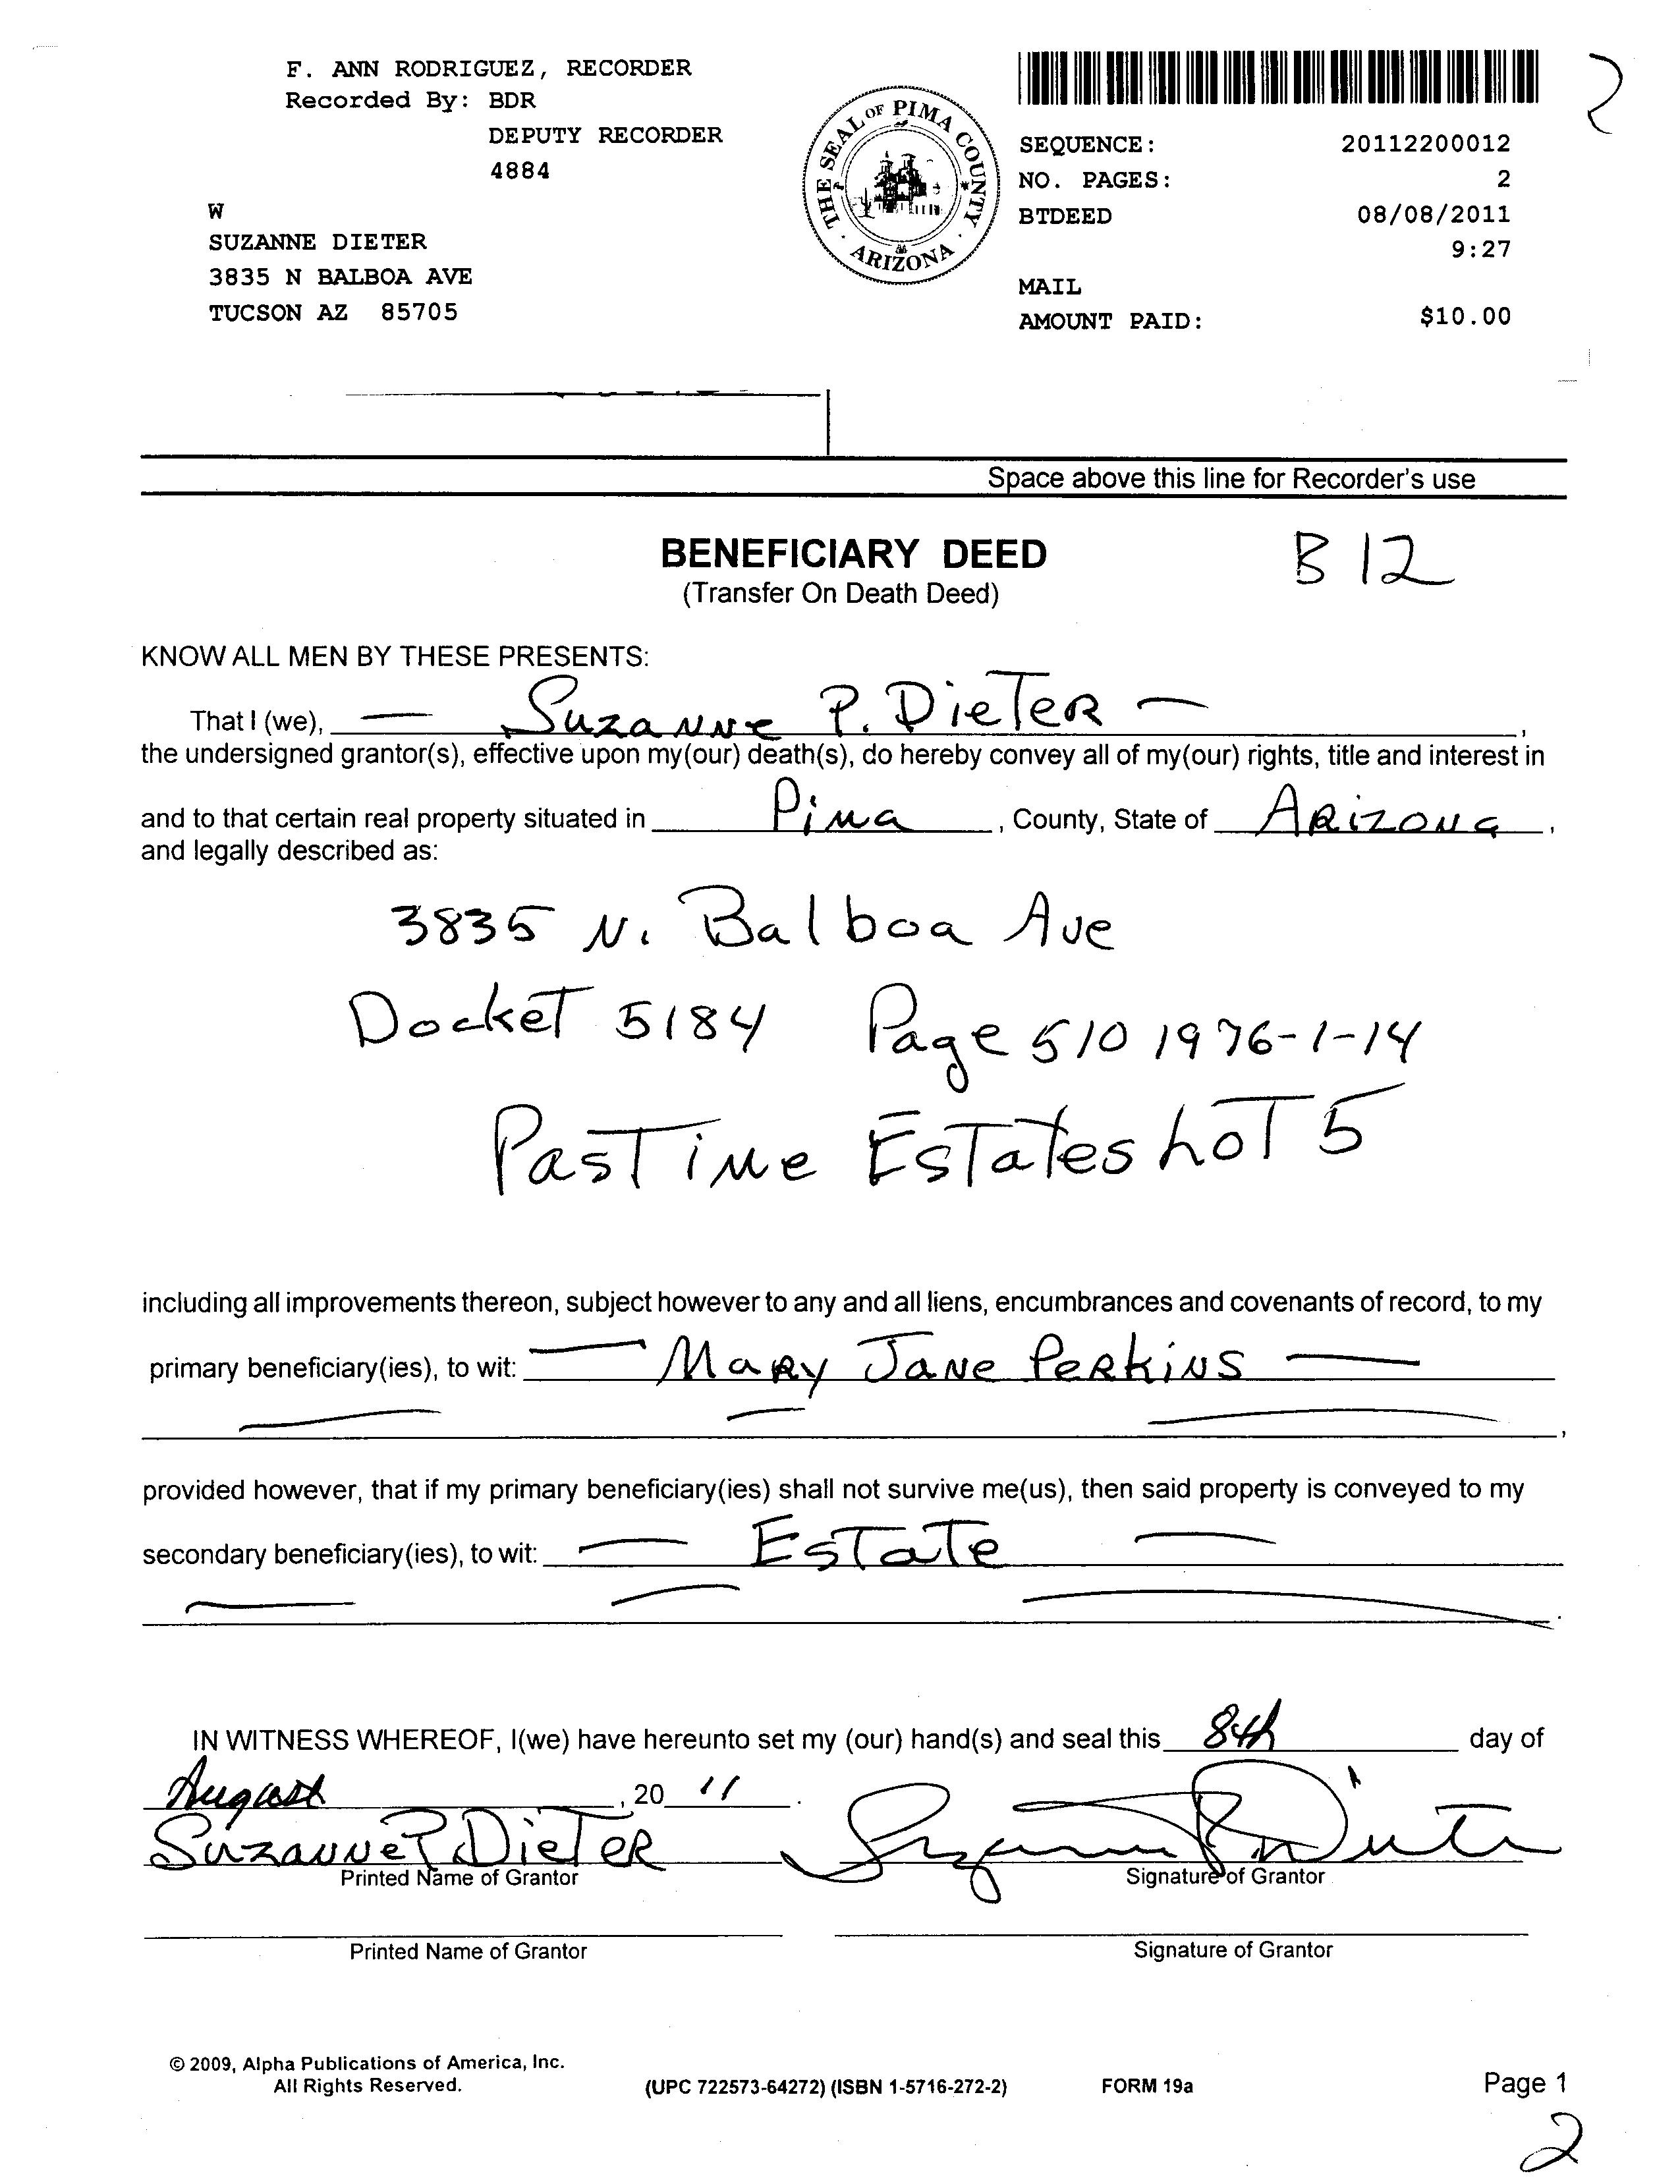 F. ANN RODRIGUEZ, RECORDER
Recorded By: BDR
DEPUTY RECORDER
4884
W
SUZANNE DIETER
3835 N BALBOA AVE
TUCSON AZ 85705
THE SEAL OF PIMA COUNTY
ARIZONA
2
SEQUENCE: 20112200012
NO. PAGES: 2
BTDEED 08/08/2011
9:27
MAIL
AMOUNT PAID: $10.00
Space above this line for Recorder's use
BENEFICIARY DEED
B 12
(Transfer On Death Deed)
KNOW ALL MEN BY THESE PRESENTS:
That I (we), — Suzanne P. Dieter —,
the undersigned grantor(s), effective upon my(our) death(s), do hereby convey all of my(our) rights, title and interest in
and to that certain real property situated in Pima, County, State of Arizona,
and legally described as:
3835 N. Balboa Ave
Docket 5184 Page 510 1976-1-14
Pastime Estates Lot 5
including all improvements thereon, subject however to any and all liens, encumbrances and covenants of record, to my
primary beneficiary(ies), to wit: — Mary Jane Perkins —
,
provided however, that if my primary beneficiary(ies) shall not survive me(us), then said property is conveyed to my
secondary beneficiary(ies), to wit: — Estate —
.
IN WITNESS WHEREOF, I(we) have hereunto set my (our) hand(s) and seal this 8th day of
August, 20 11.
Suzanne P Dieter Suzanne P Dieter
Printed Name of Grantor Signature of Grantor
Printed Name of Grantor Signature of Grantor
© 2009, Alpha Publications of America, Inc.
All Rights Reserved. (UPC 722573-64272) (ISBN 1-5716-272-2) FORM 19a Page 1
2